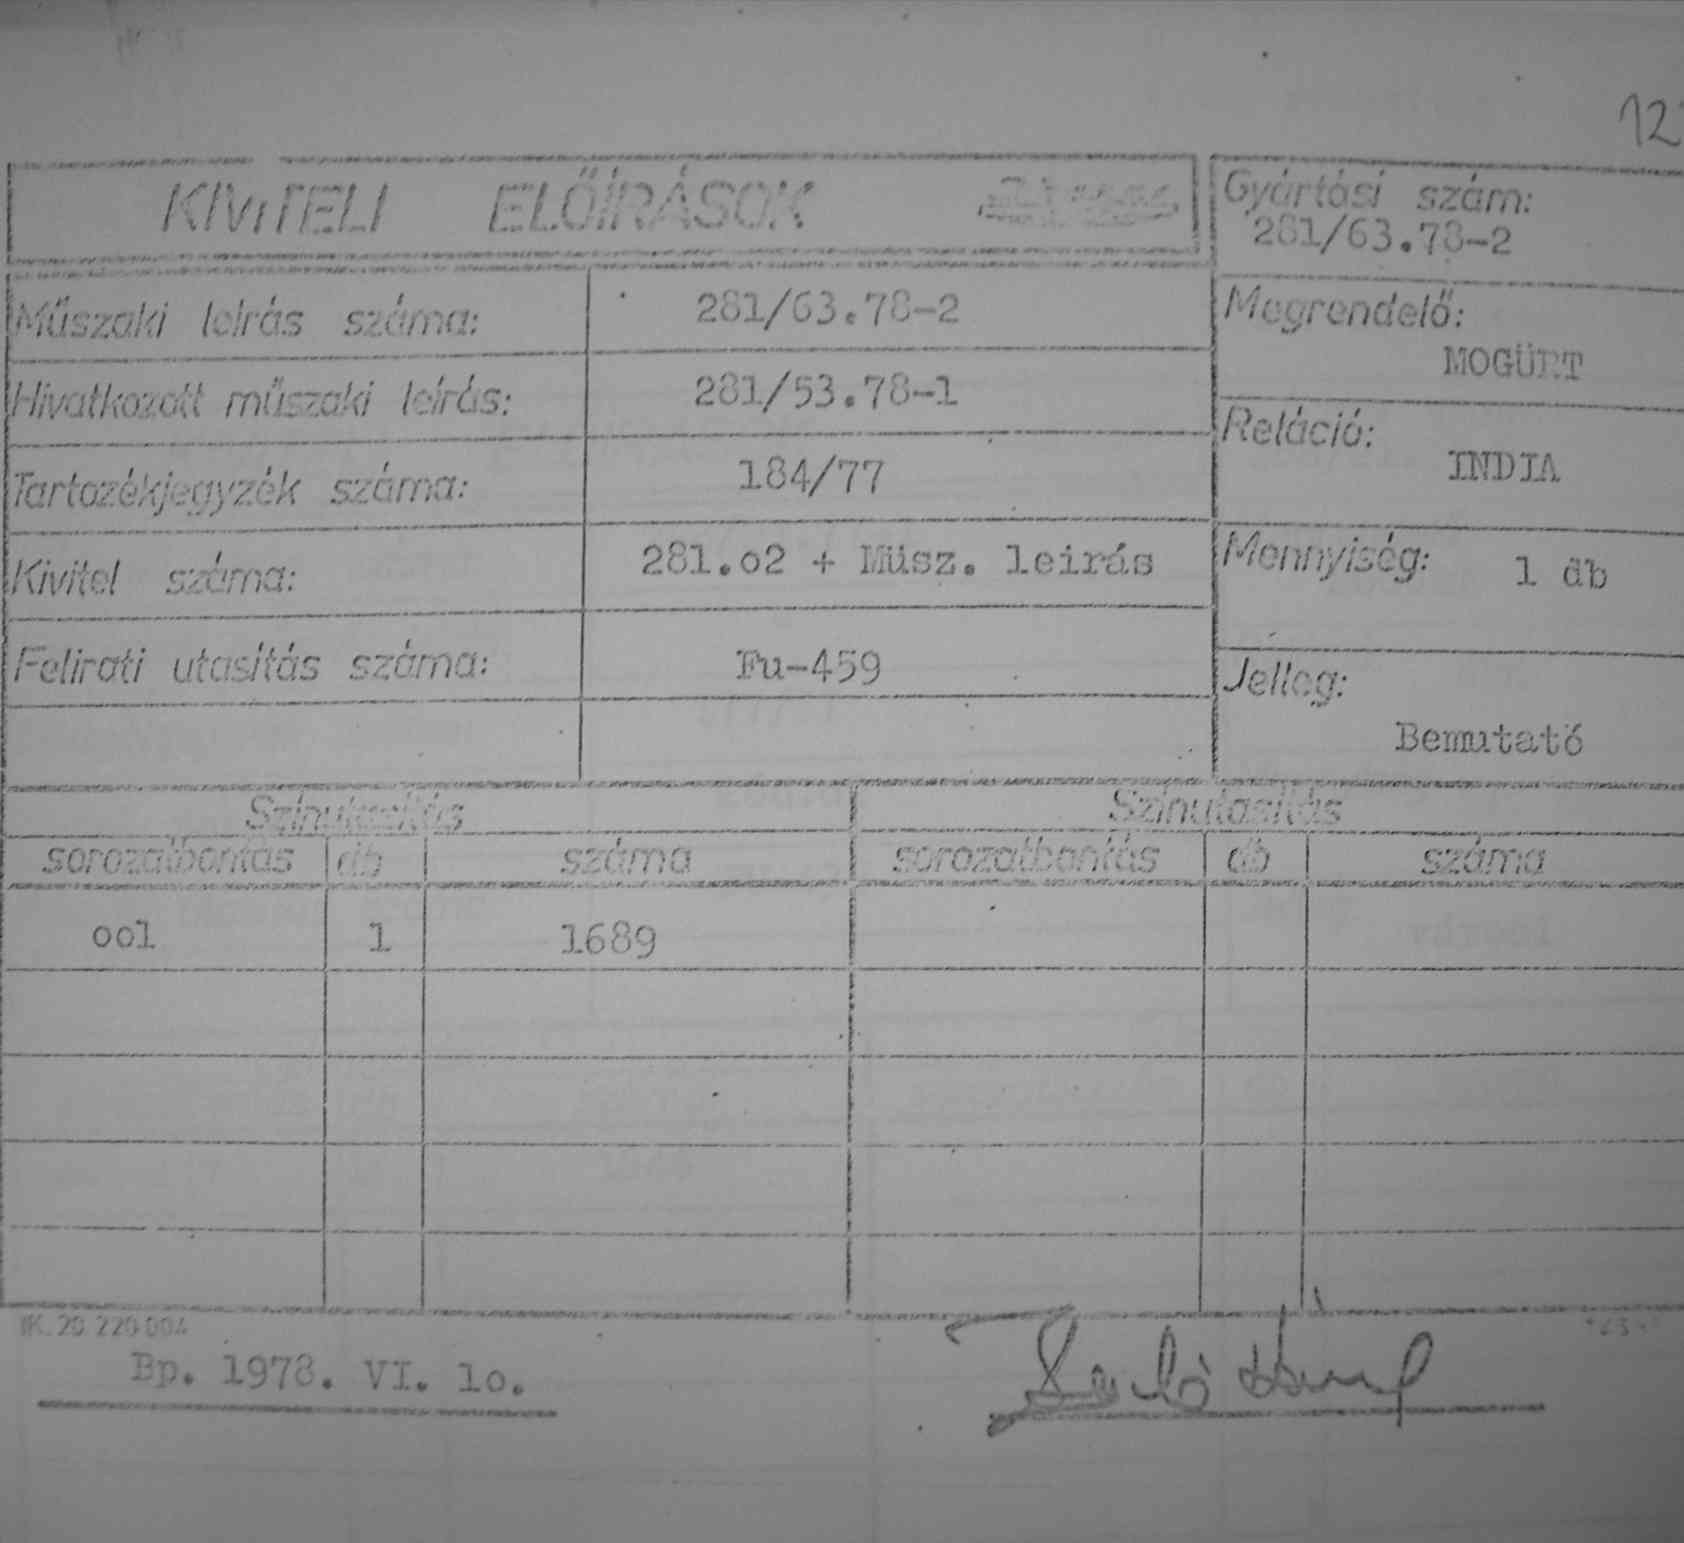 12
KIVITELI ELŐÍRÁSOK
Gyártási szám:
281/63.78-2
Műszaki leírás száma: 281/63.78-2
Megrendelő:
MOGÜRT
Hivatkozott műszaki leírás: 281/53.78-1
Reláció:
INDIA
Tartozékjegyzék száma: 184/77
Kivitel száma: 281.o2 + Müsz. leirás
Mennyiség: 1 db
Felirati utasítás száma: Fu-459
Jelleg:
Bemutató
Színutasítás Színutasítás
sorozatbontás db száma sorozatbontás db száma
oo1 1 1689
IK. 20 220 004
Bp. 1978. VI. 1o.